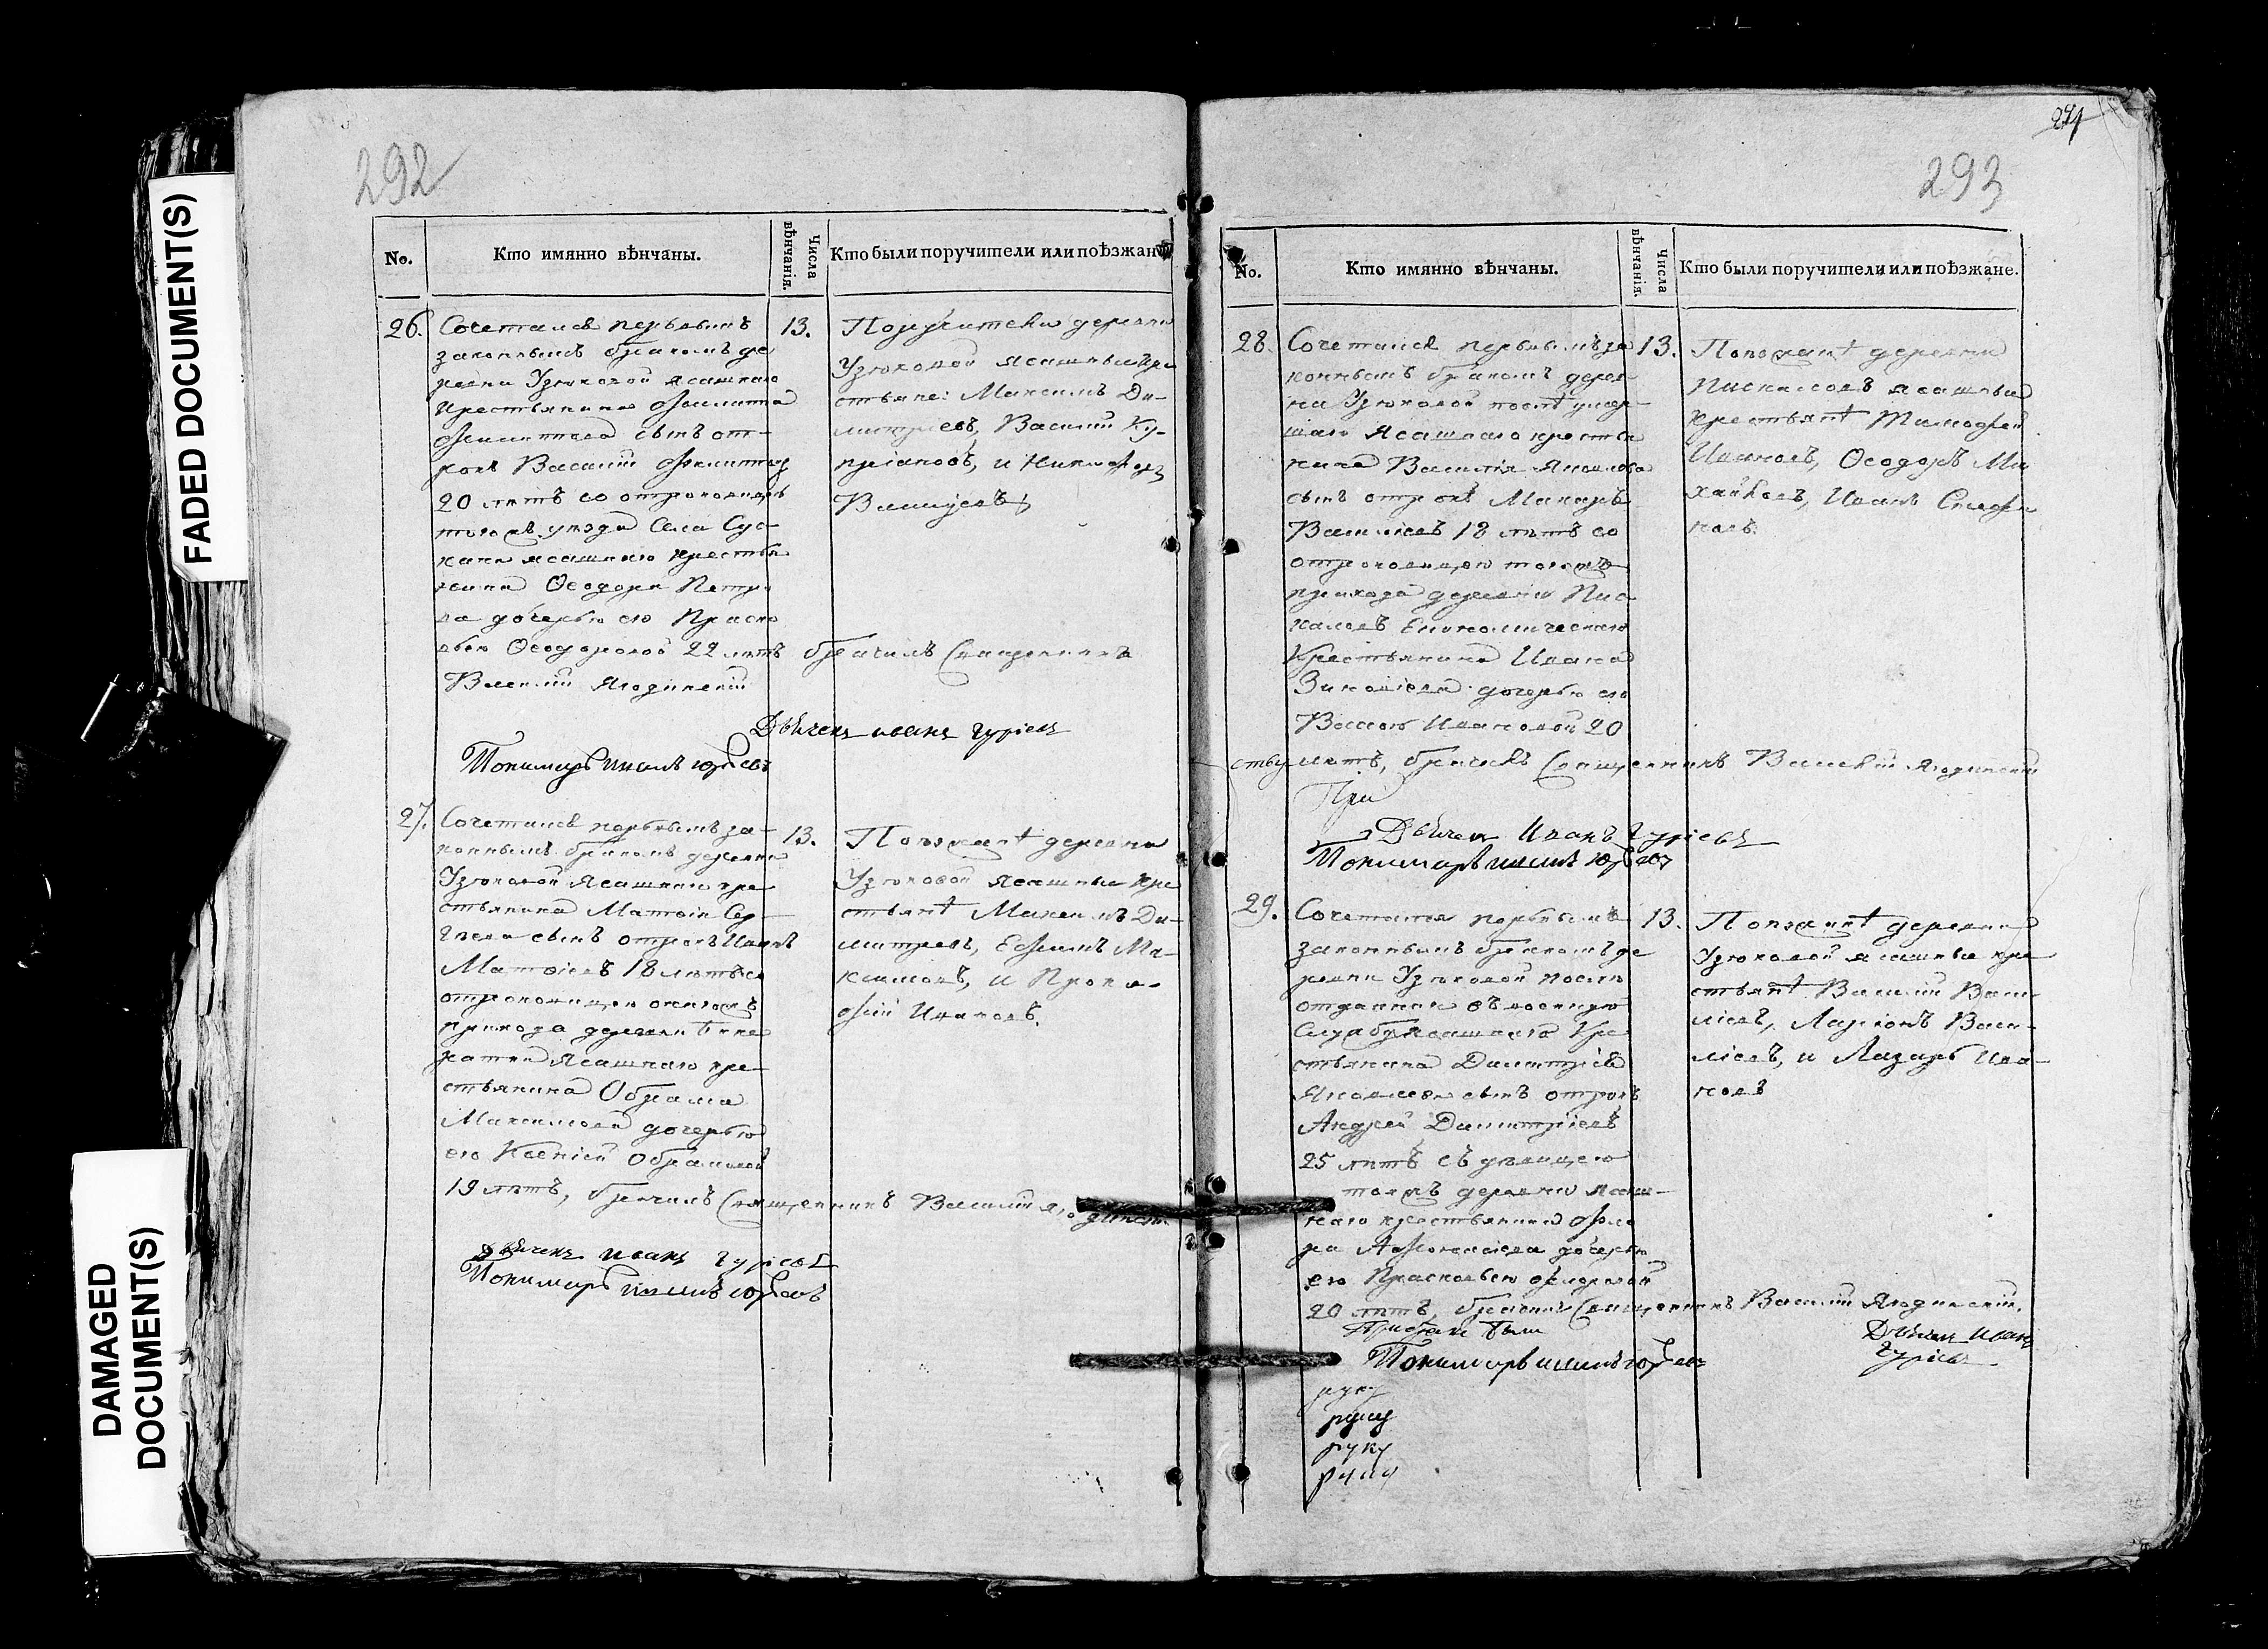 FADED DOCUMENT(S)
DAMAGED
DOCUMENT(S)
292
No.
Кто имянно вѣнчаны.
Числа
вѣнчанія.
Кто были поручители или поѣзжане
26.
Сочетался первымъ
законнымъ бракомъ де
ревни Узюковой ясашнаго
крестьянина Филиппа
Филиппова сынъ от-
рокъ Василій Филиппов
20 лѣтъ со отроковицею
тогожъ уѣзда Села Сус-
кана ясашнаго крестья
нина Ѳеодора Петро
ва дочерью его Праско
вьею Ѳеодоровой 22 лѣтъ брачилъ Священникъ
Василій Ягодинскій
13.
Поручители деревни
Узюковой ясашные кре
стьяне: Максимъ Ди-
митріевъ, Василій Ку-
пріановъ, и Никифоръ
Дьячекъ иванъ гуріевъ
Пономарь
27.
Сочетался первымъ за-
коннымъ бракомъ деревни
Узюковой Ясашнаго кре
стьянина Матѳія Сер-
гѣева сынъ отрокъ Иванъ
Матѳіевъ 18 лѣтъ со
отроковицею
прихода деревни
Ясашнаго кре
стьянина Обрама
Максимова дочерью
его Ксеніей Обрамовой
19 лѣтъ, брачилъ Священникъ Василій Ягодинск
13.
Поѣзжанѣ деревни
Узюковой Ясашные кре
стьянѣ Максимъ Ди-
митріевъ, Ефимъ Ма-
ксимовъ, и Проко-
фій Ивановъ.
Дьячекъ иванъ гуріевъ
Пономарь
271
293
No.
Кто имянно вѣнчаны.
Числа
вѣнчанія.
Кто были поручители или поѣзжане.
28.
Сочетался первымъ за
коннымъ бракомъ дерев-
ни Узюковой послѣ умер-
шаго Ясашнаго крестья
нина Василія Яковлева
сынъ отрокъ Макаръ
Василіевъ 18 лѣтъ со
отроковицею тогожъ
прихода деревни Пис
каловъ Економическаго
Крестьянина Ивана
Зиновіева дочерью его
Вассою Ивановой 20
ству лѣтъ, брачилъ Священникъ Василій Ягодинскій
При
13.
Поѣзжанѣ деревни
Пискаловъ ясашные
крестьянѣ Тимофей
Ивановъ, Ѳеодоръ Ми
хайловъ, Иванъ Спиридо
новъ.
Дьячек Иванъ Гуріевъ
Пономарь
29.
Сочетался первымъ
законнымъ бракомъ де
ревни Узюковой послѣ
отданнаго въ военную
Службу ясашнаго Кре
стьянина Димитрія
Яковлева сынъ отрокъ
Андрей Димитріевъ
25 лѣтъ съ дѣвицею
тоежъ деревни ясаш-
наго крестьянина Фло
ра Афонасіева дочерью
его Прасковьею Флоровой
20 лѣтъ, брачилъ Священникъ Василій Ягодинскій.
13.
Поѣзжанѣ деревни
Узюковой ясашные кре
стьянѣ Василій Васи-
ліевъ, Ларіонъ Васи-
ліевъ, и Лазарь Ива-
новъ
При были
Дьячек Иванъ
Гуріевъ
Пономарь
руку
руку
руку
руку